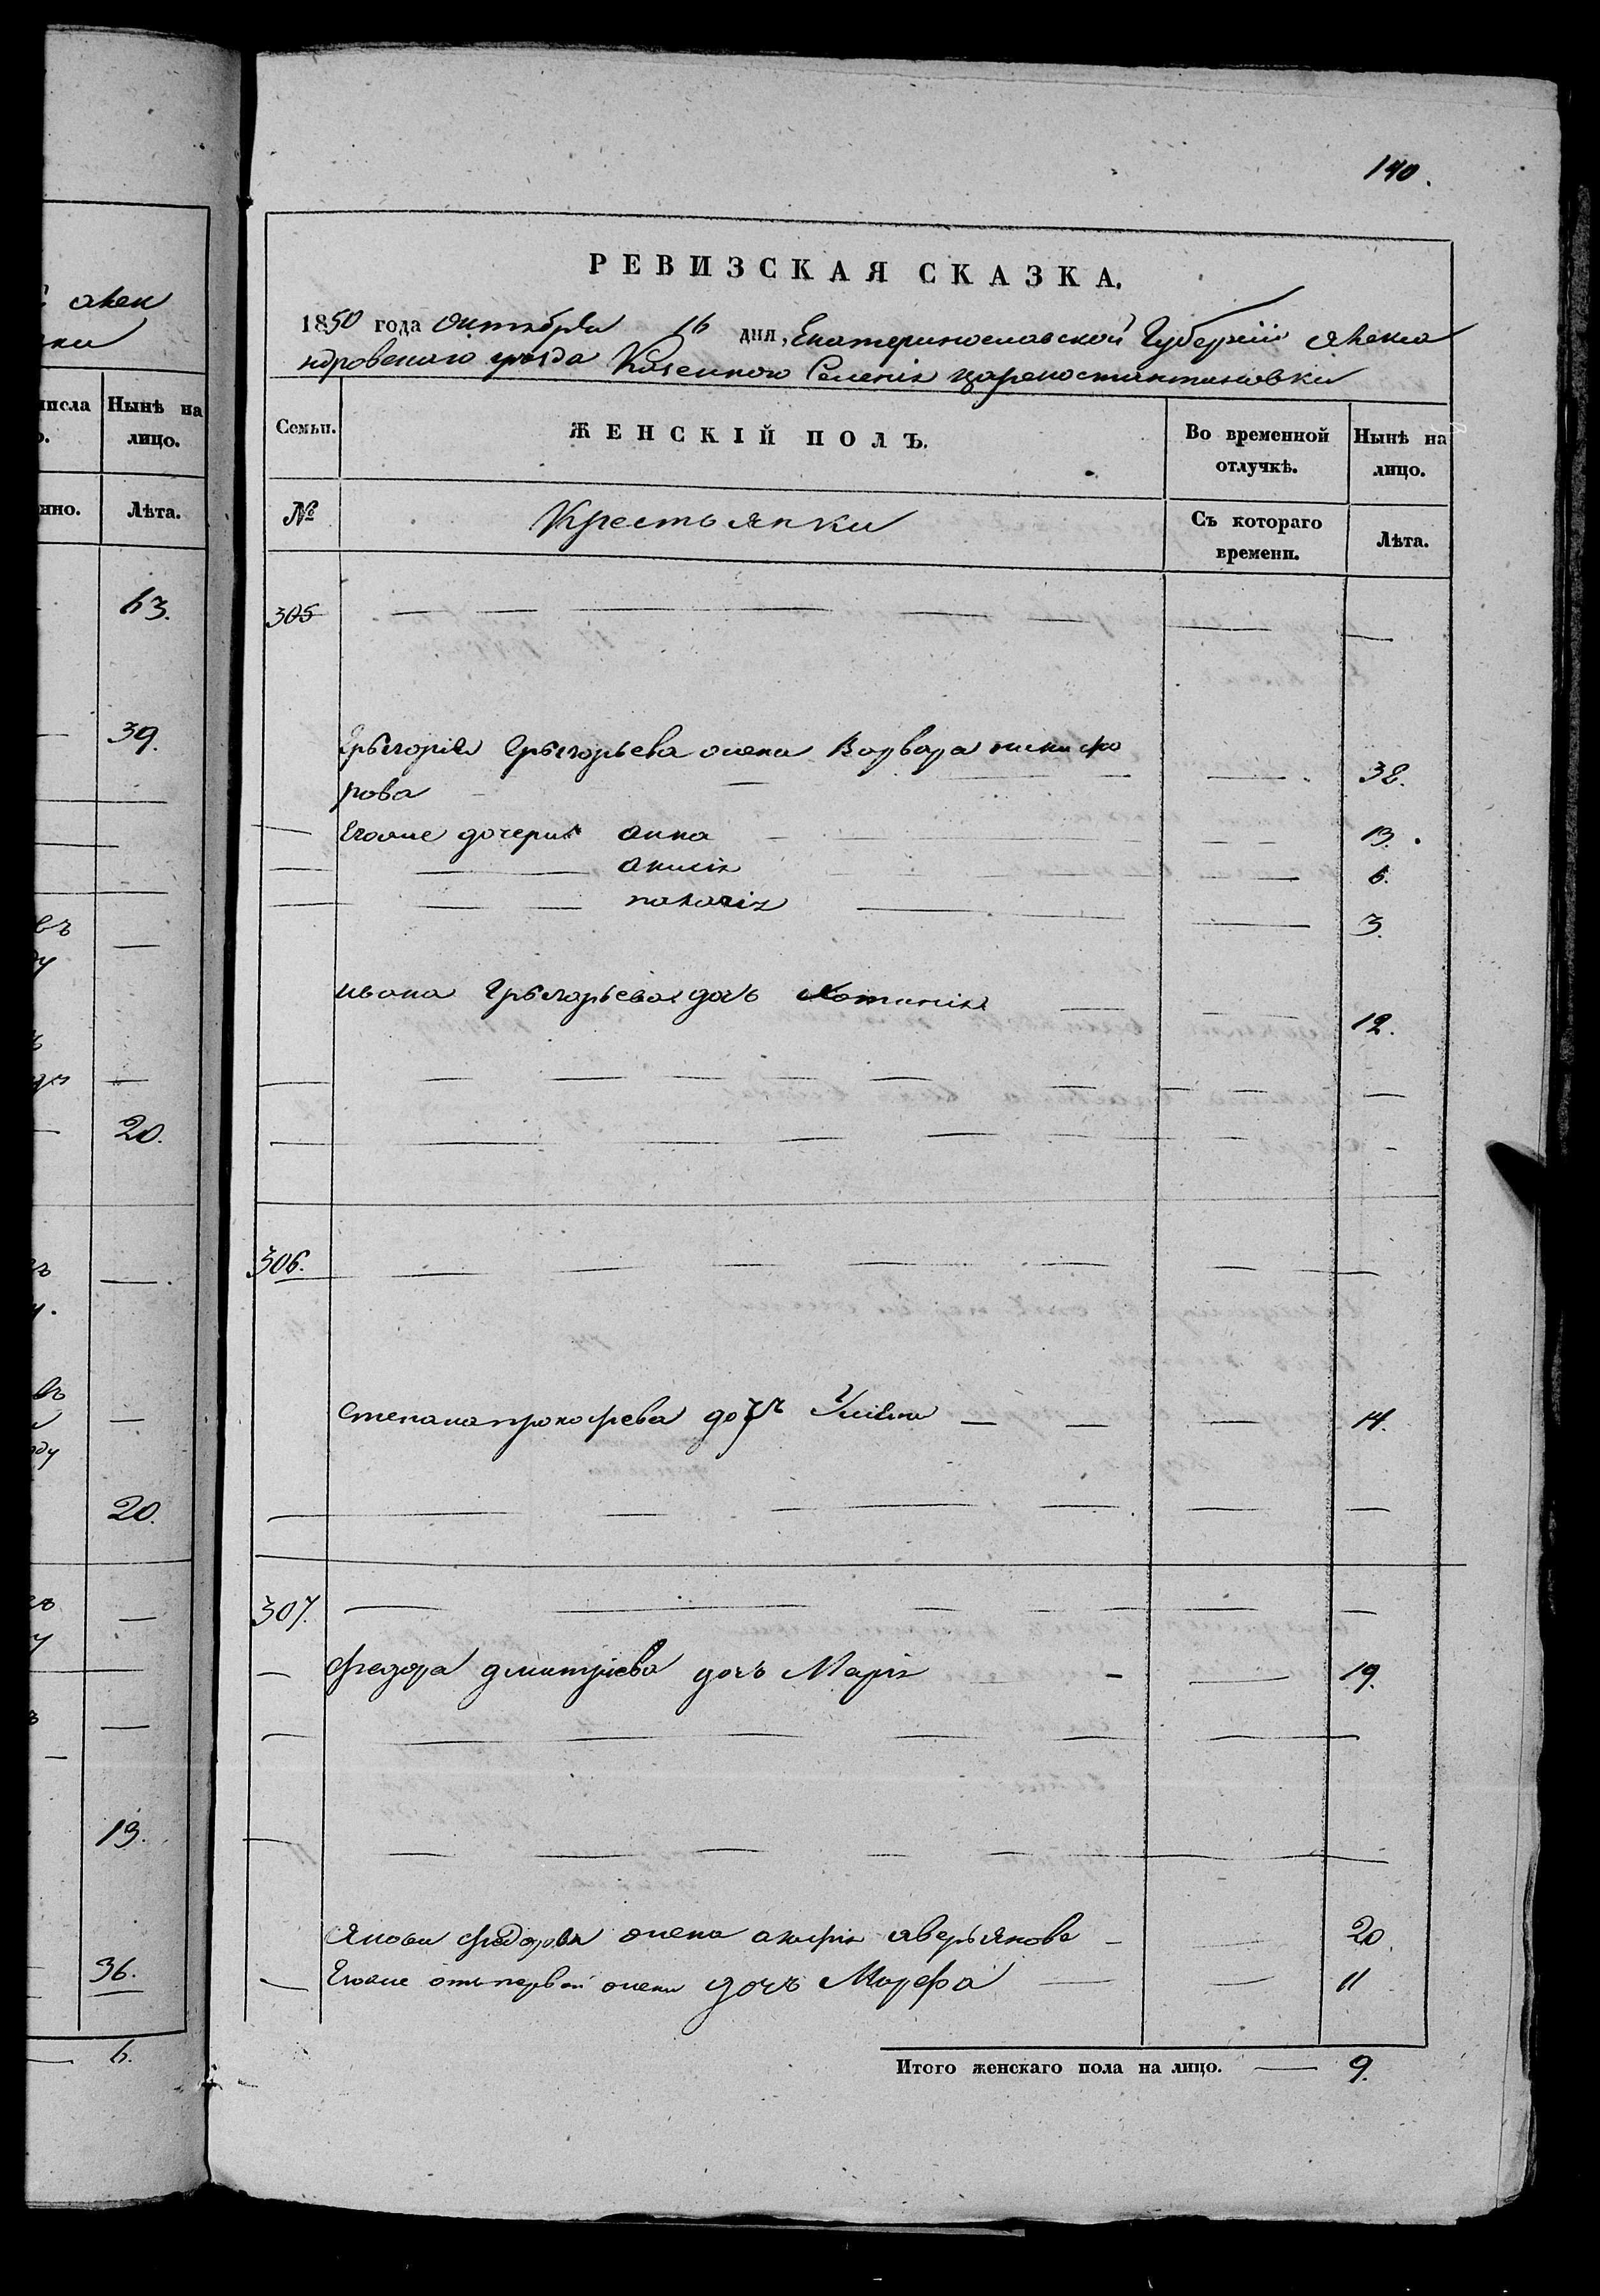 140.
РЕВИЗСКАЯ СКАЗКА.
1850 года Октября 16 дня, Екатеринославской Губерніи Алекса
ндровскаго уезда Казенного Селенія Цареконстантиновки
Семьи. ЖЕНСКІЙ ПОЛЪ. Во временной отлучкѣ. Нынѣ на лицо.
№ Крестьянки Съ котораго времени. Лѣта.
305
Грыгорія Грыгорьева жена Варвара никифо
рова 38.
Егоже дочери анна 13.
анисія 6.
палагія 3.
ивана Грыгорьева дочь Хотинія 12.
306.
степана прокофева дочь 14.
307.
Федора дмитріева дочь Марія 19.
Якова Федорова жена аверьянова 20.
Егоже отъ первой жены дочь Марфа 11
Итого женскаго пола на лицо. 9.
алек
числа Нынѣ на
лицо.
нно. Лѣта.
63.
39.
20.
20.
19.
36.
6.